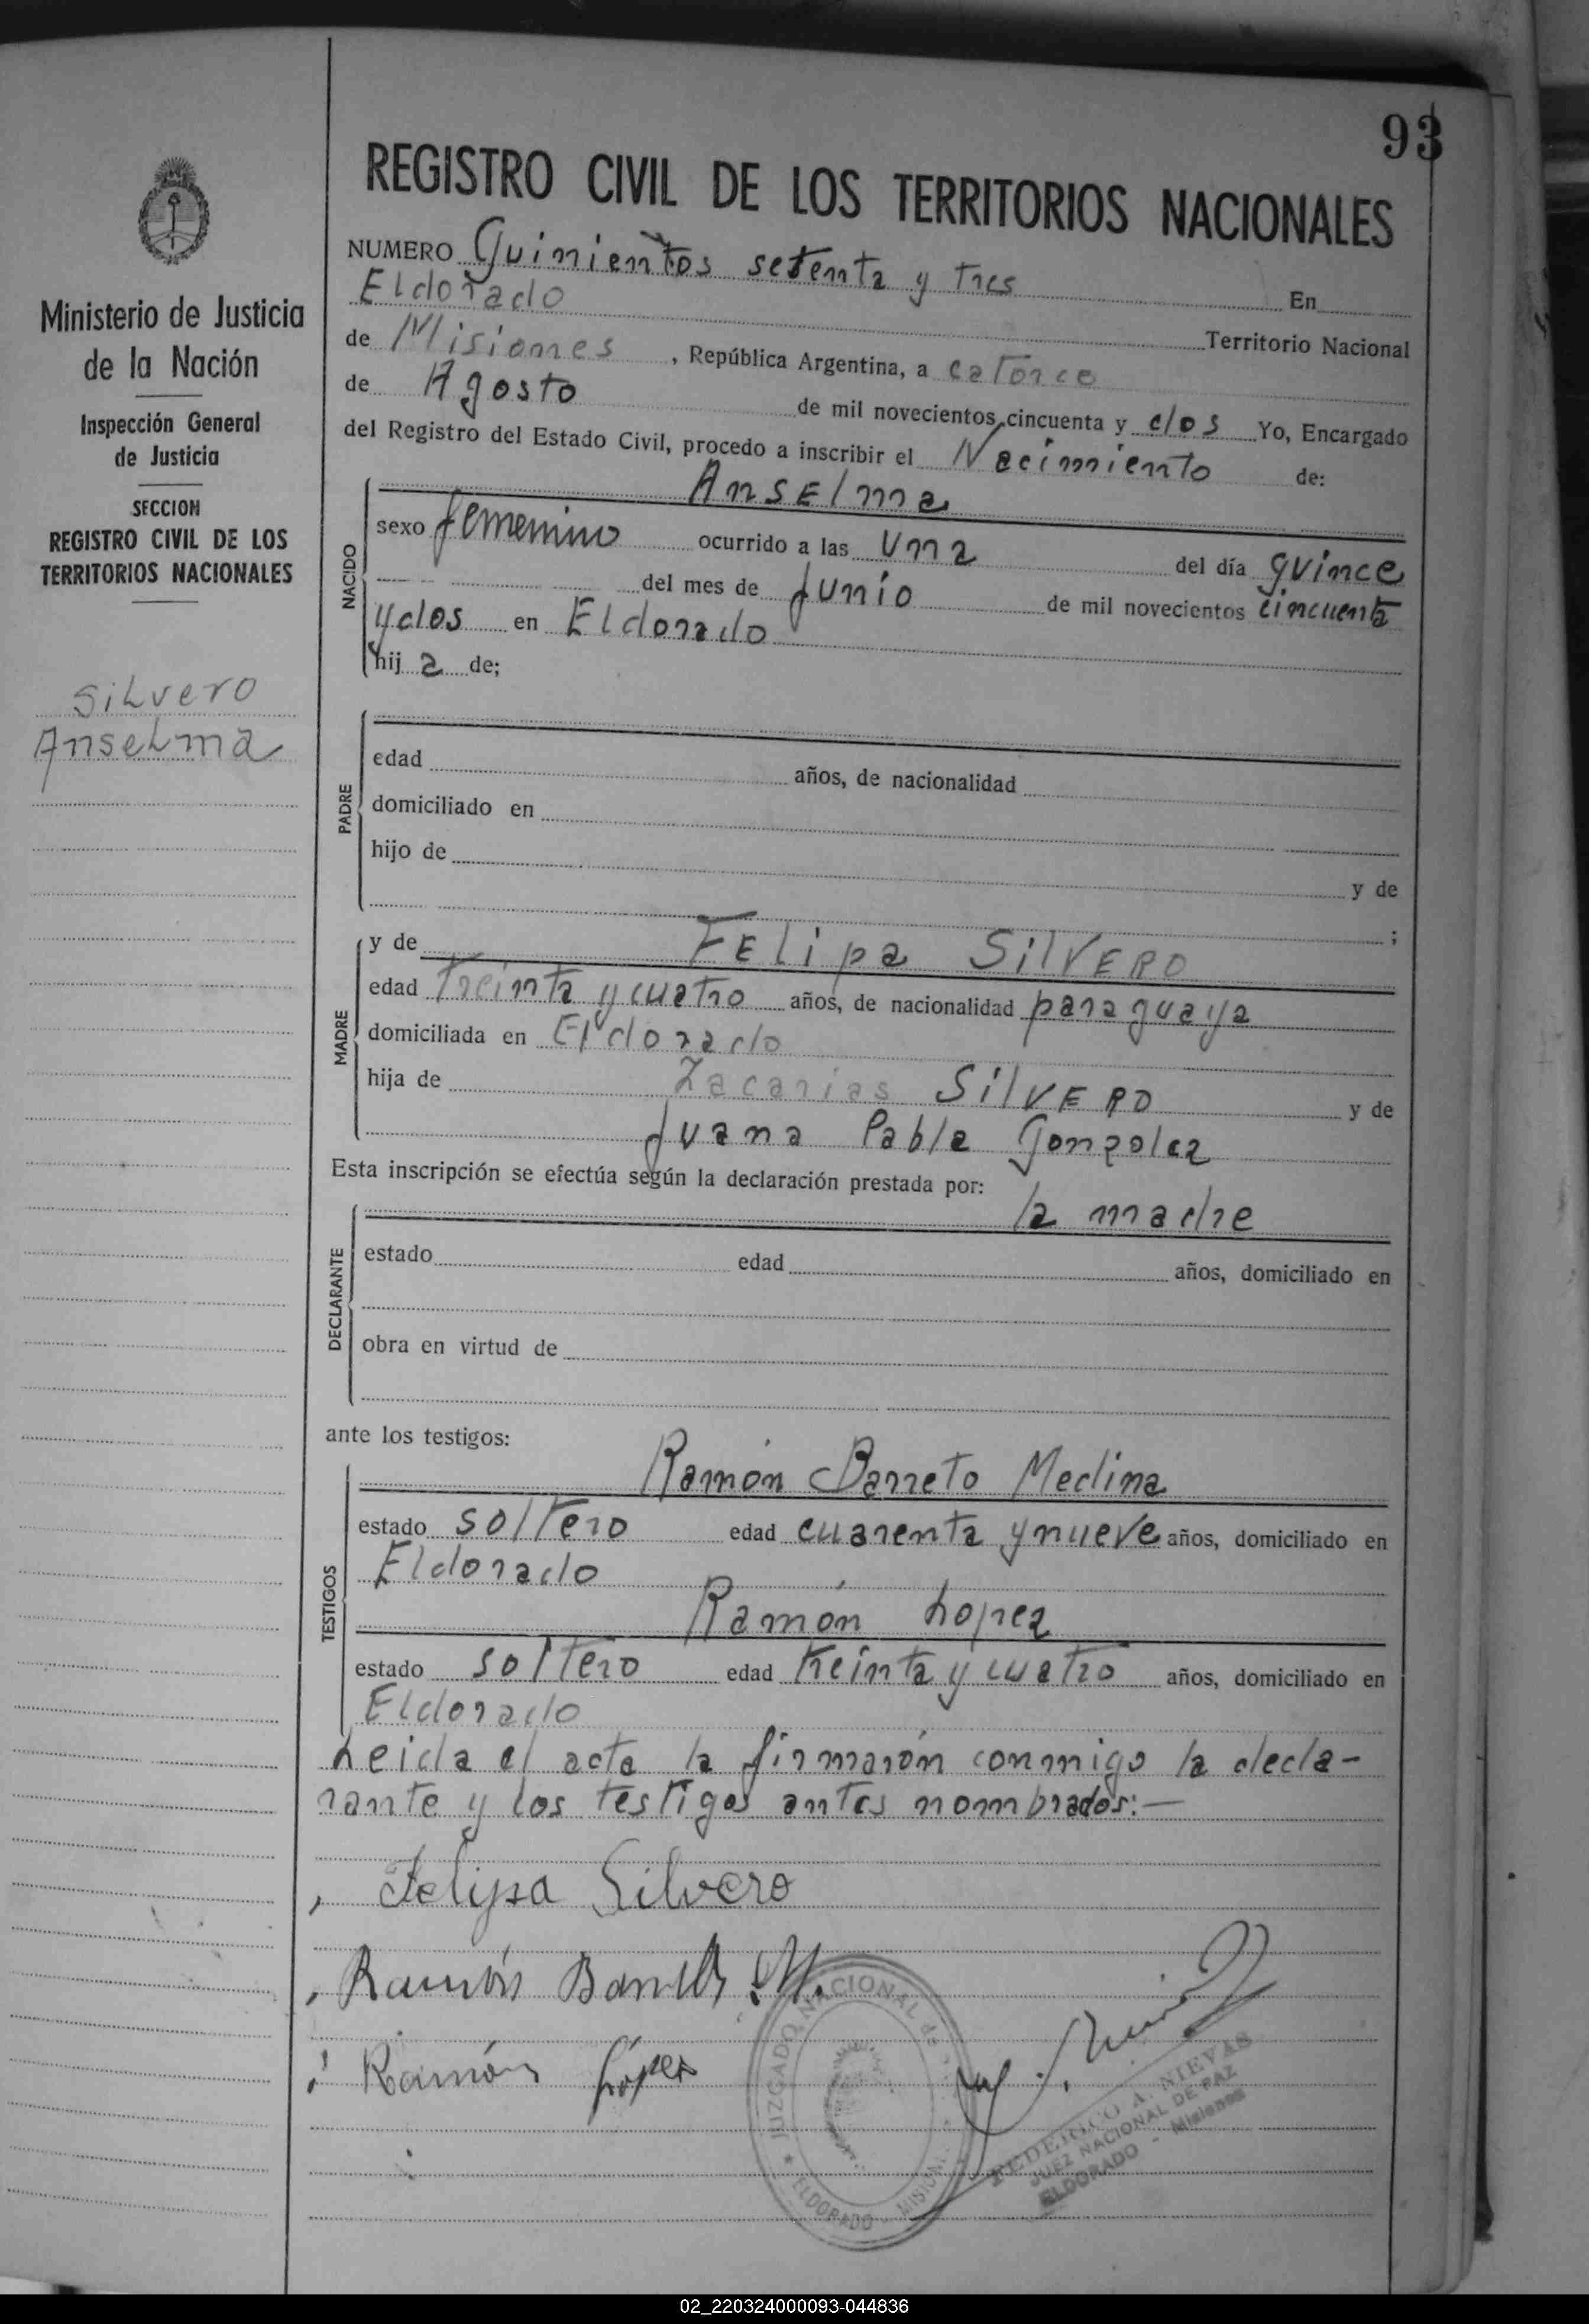 93
REGISTRO CIVIL DE LOS TERRITORIOS NACIONALES
Ministerio de Justicia
de la Nación
Inspección General
de Justicia
SECCION
REGISTRO CIVIL DE LOS
TERRITORIOS NACIONALES
Silvero
Anselma
NUMERO Quinientos setenta y tres En
Eldorado Territorio Nacional
de Misiones, República Argentina, a catorce
de Agosto de mil novecientos cincuenta y dos Yo, Encargado
del Registro del Estado Civil, procedo a inscribir el Nacimiento de:
NACIDO
Anselma
sexo femenino ocurrido a las una del día quince
del mes de Junio de mil novecientos cincuenta
y dos en Eldorado
hija de;
PADRE
edad años, de nacionalidad
domiciliado en
hijo de y de
;
MADRE
y de Felipa SilVERO
edad treinta y cuatro años, de nacionalidad paraguaya
domiciliada en Eldorado
hija de Zacarias SilVERO y de
Juana Pabla Gonzalez
Esta inscripción se efectúa según la declaración prestada por:
DECLARANTE
la madre
estado edad años, domiciliado en
obra en virtud de
ante los testigos:
TESTIGOS
Ramón Barreto Medina
estado soltero edad cuarenta y nueve años, domiciliado en
Eldorado
Ramón Lopez
estado soltero edad treinta y cuatro años, domiciliado en
Eldorado
Leida el acta la firmarón conmigo la decla-
rante y los testigos antes nombrados:—
Felipa Silvero
Ramón Barreto M.
Ramón López
JUZGADO NACIONAL de
ELDORADO - MISIONES
FEDERICO A. NIEVAS
JUEZ NACIONAL DE PAZ
ELDORADO - Misiones
02_220324000093-044836